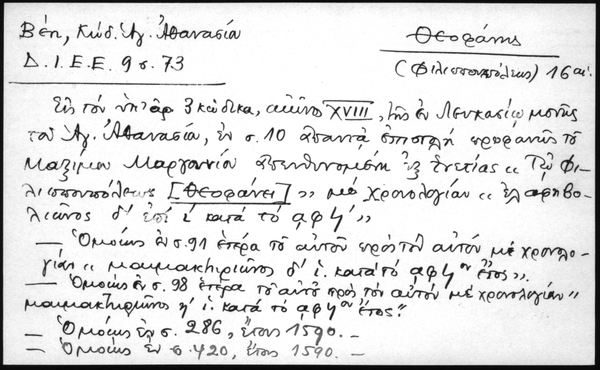 Βέη, Κώδ. Ἁγ. Ἀθανασία
Θεοφάνης
Δ.Ι.Ε.Ε. 9 σ. 73
(Φιλιππουπόλεως) 16 αἰ.
Εἰς τὸν ὑπ' ἀρ 3 κώδικα, αἰῶνος XVIII, τῆς ἐν Λευκασίῳ μονῆς
τοῦ Ἁγ. Ἀθανασία, ἐν σ. 10 ἀπαντᾷ ἐπιστολὴ προφανῶς τοῦ
Μαξίμου Μαργουνίου ἀπευθυνομένη ἐξ Ἑνετίας «Τῷ Φι-
λιππουπόλεως [Θεοφάνει]» μὲ χρονολογίαν «ἐλαφηβο-
λιῶνος δ' ἐπὶ ι κατὰ τὸ αφϞ'»
— Ὁμοίως ἐν σ. 91 ἑτέρα τοῦ αὐτοῦ πρὸς τὸν αὐτὸν μὲ χρονολο-
γίαν «μαιμακτηριῶνος δ' ι. κατὰ τὸ αφϞον ἔτος».
— Ὁμοίως ἐν σ. 98 ἑτέρα τοῦ αὐτοῦ πρὸς τὸν αὐτὸν μὲ χρονολογίαν "
μαιμακτηριῶνος η' ι. κατὰ τὸ αφϞον ἔτος."
— Ὁμοίως ἐν σ. 286, ἔτους 1590. —
— Ὁμοίως ἐν σ. 420, ἔτους 1590. —